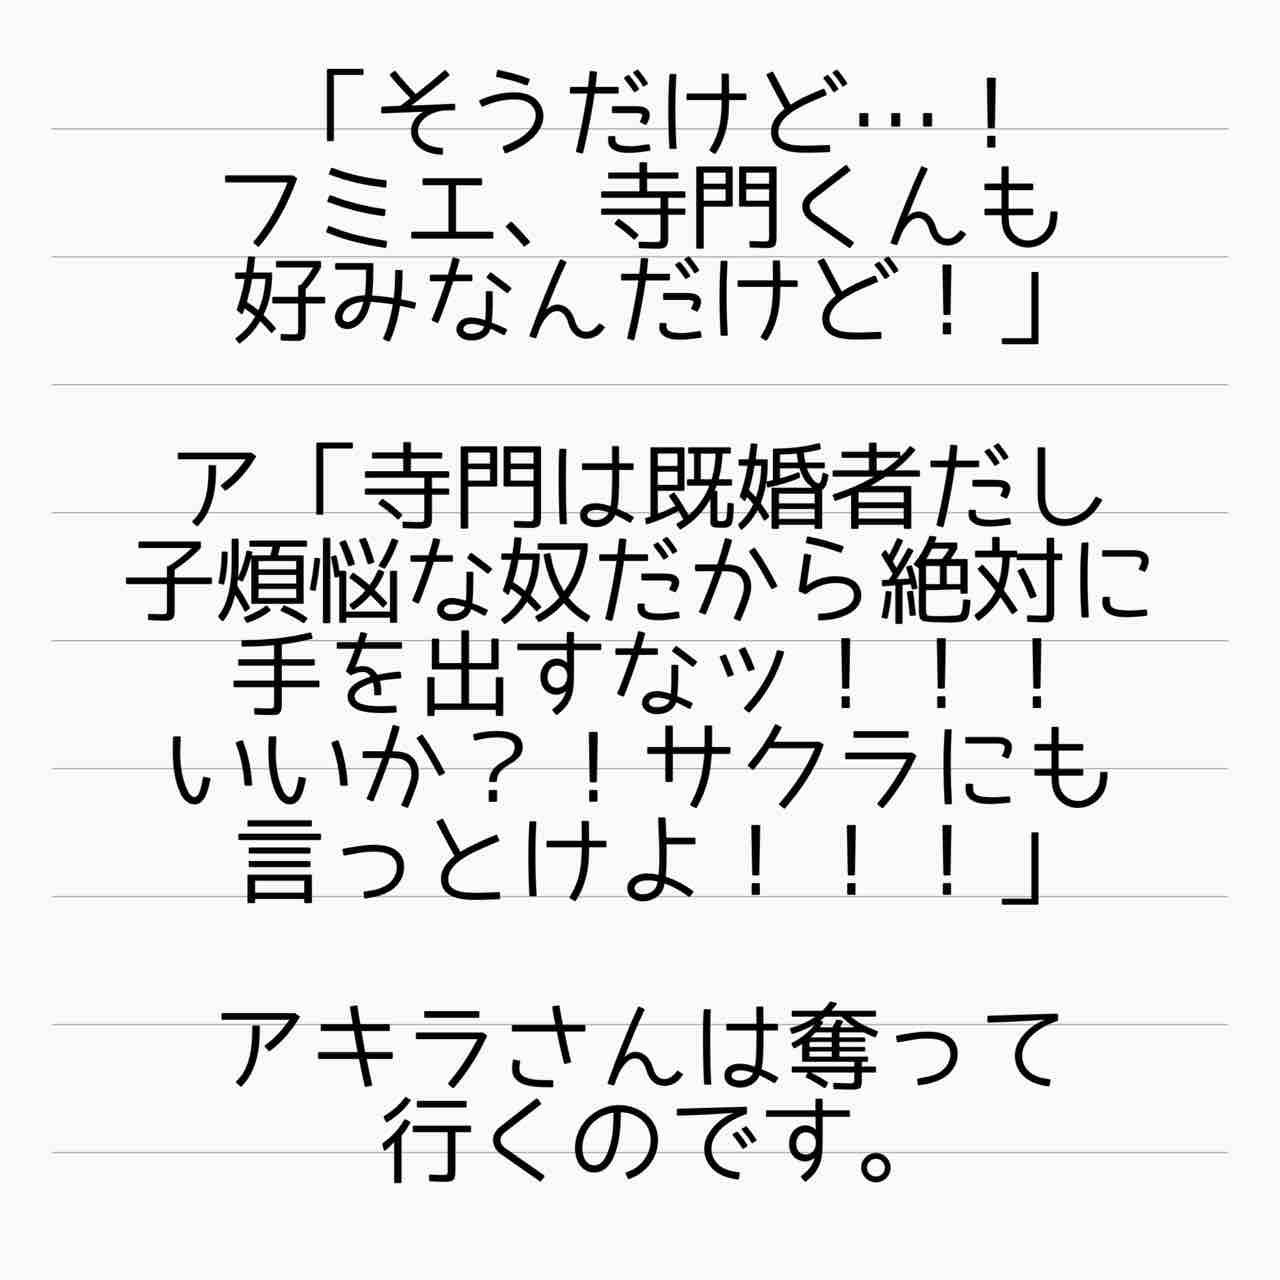 「そうだけど…！
フミエ、寺門くんも
好みなんだけど！」
ア「寺門は既婚者だし
子煩悩な奴だから絶対に
手を出すなッ！！！
いいか？！サクラにも
言っとけよ！！！」
アキラさんは奪って
行くのです。